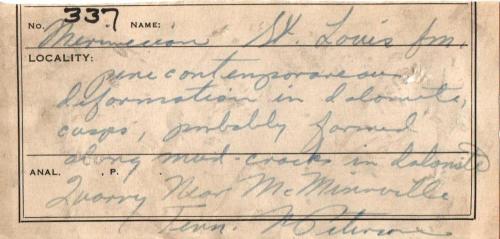 No. 337 NAME:
Mermecian St. Louis fm.
LOCALITY:
penecontemporaneous
deformation in dolomite,
cusps, probably formed
along mud-cracks in dolomite
ANAL. , P.
Quarry Near McMinnville
Tenn. Peterson